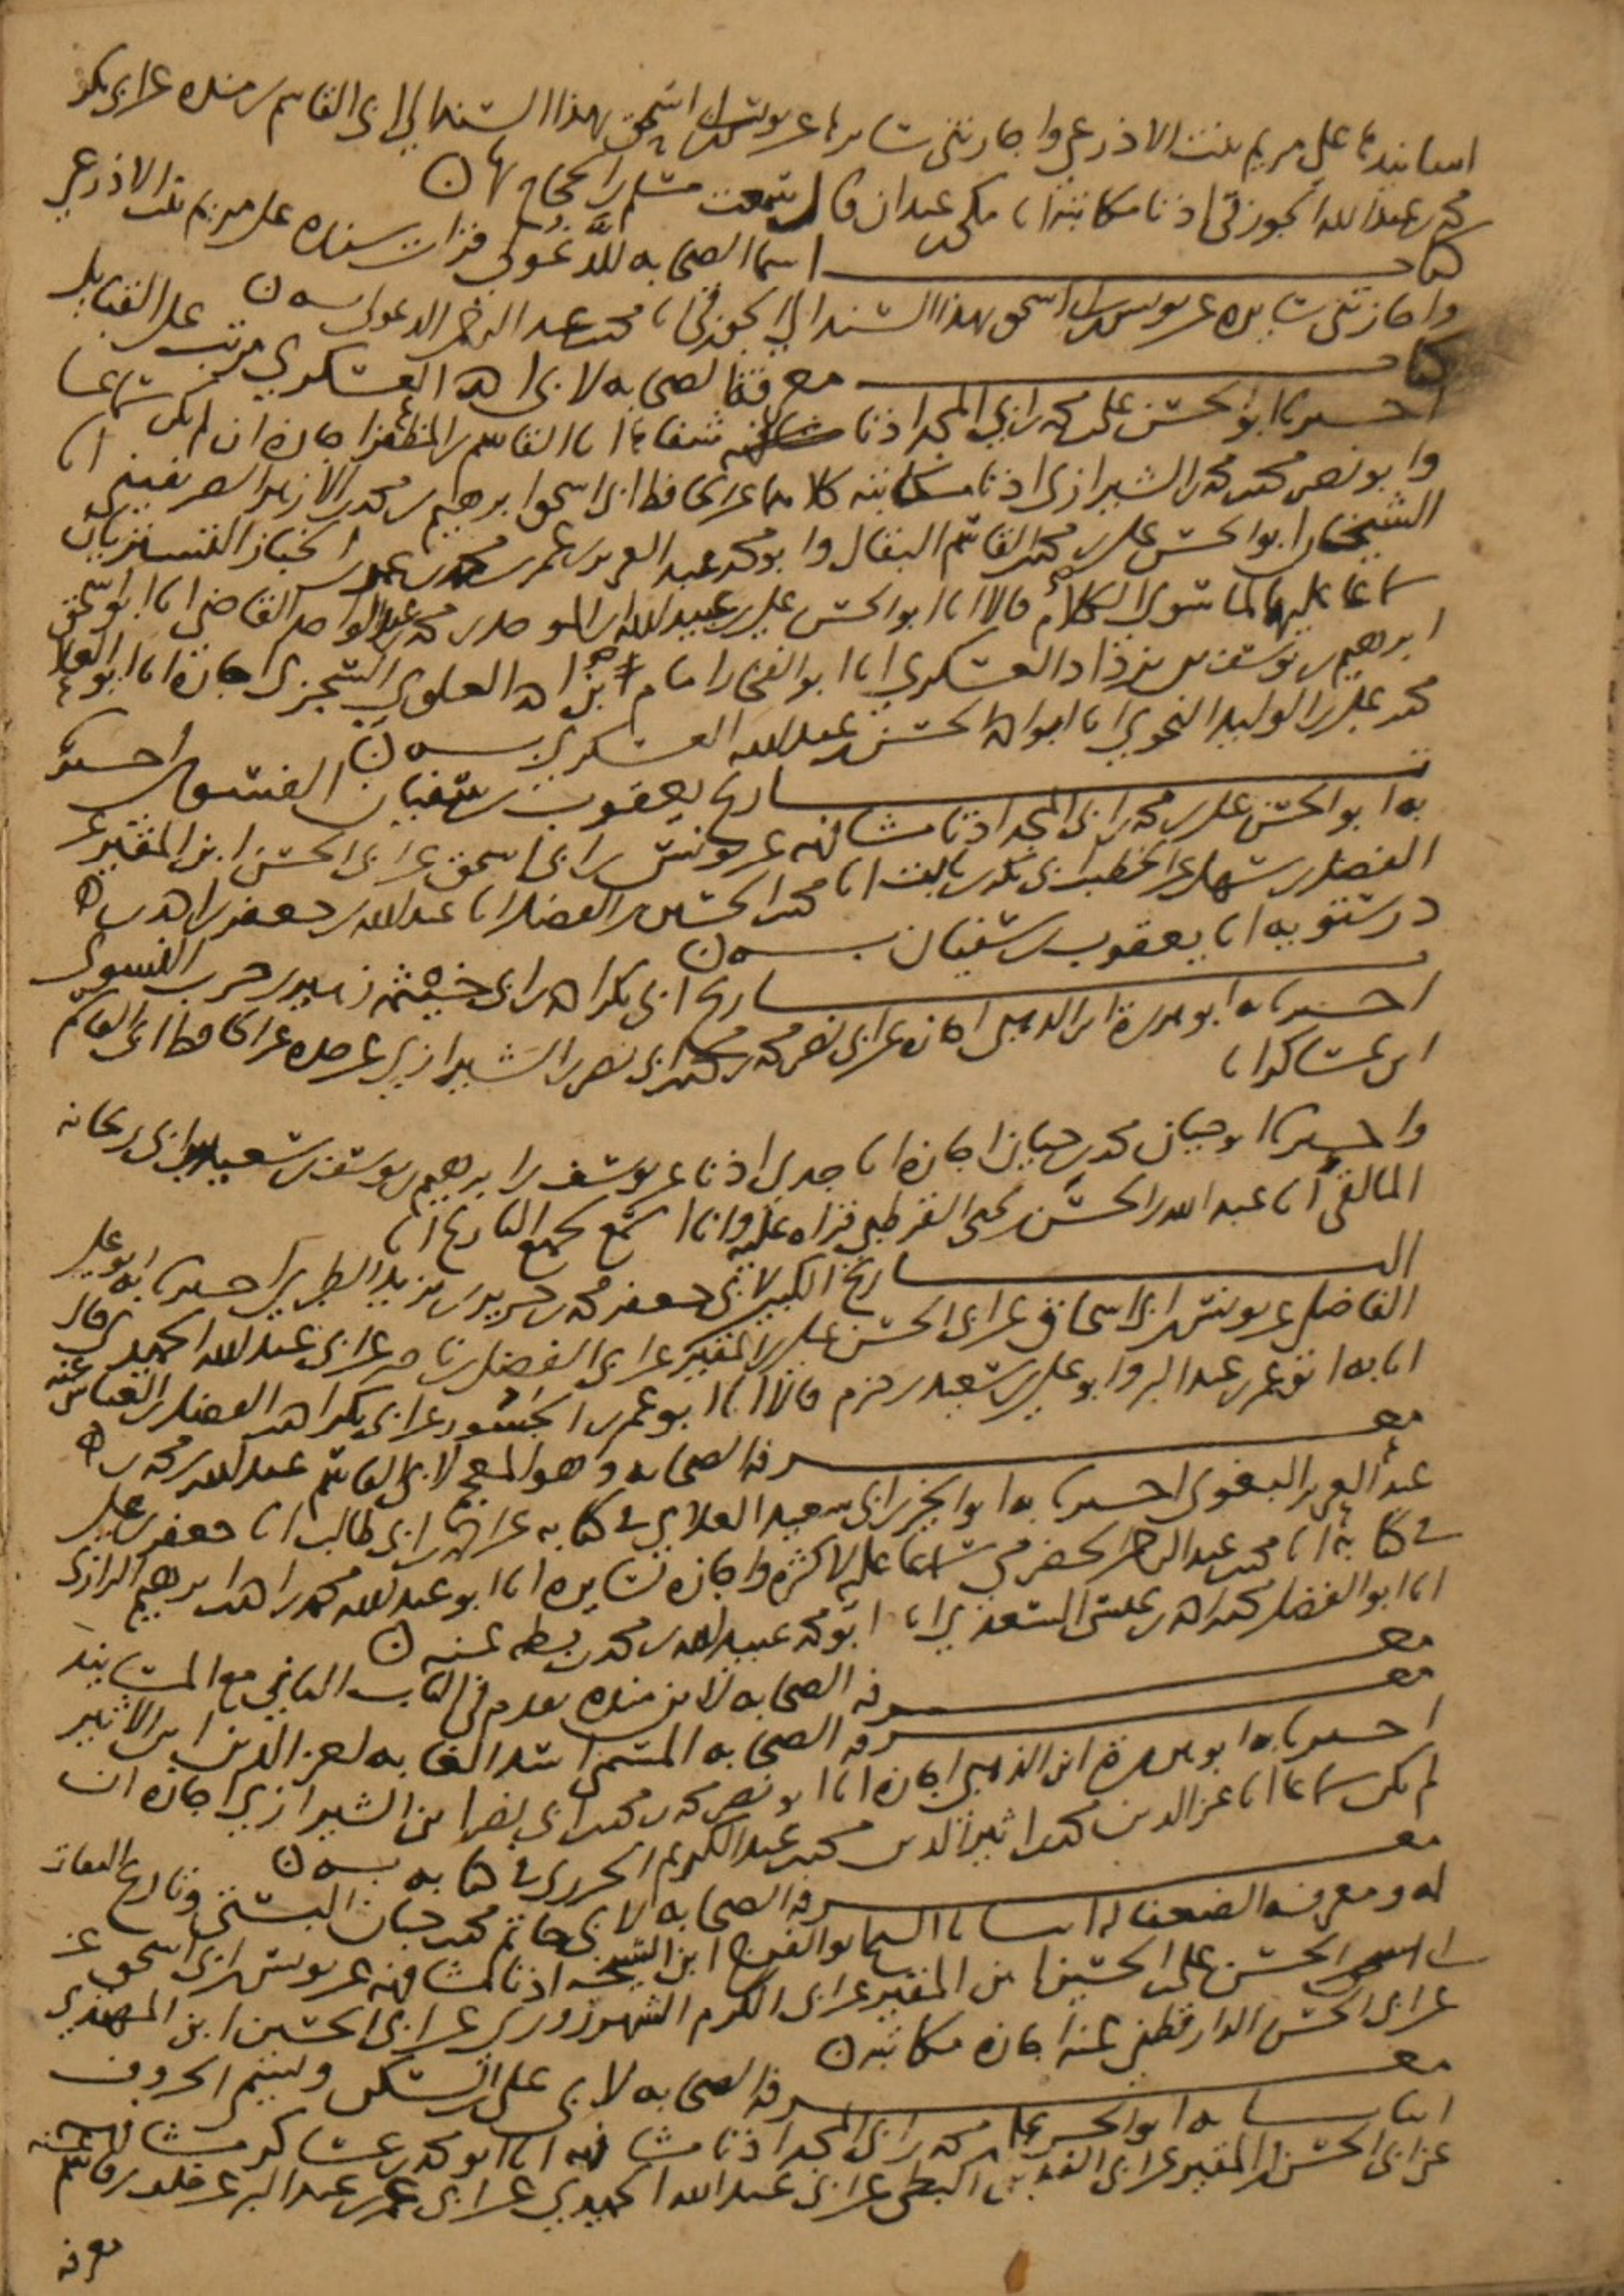 اسانيدها على مريم بنت الاذرعي واجازتني سايرها عن يونس بن ابي اسحق بهذا السند الى ابي القاسم بن منده عن ابي بكر
محمد بن عبد الله الجوزقي اذنا مكاتبة انا مكي بن عبدان قال سمعت مسلم بن الحجاج بها
كتاب اسما الصحابه للدغولي قرات سنده على مريم بنت الاذرعي
واجازتني سايره عن يونس بن ابي اسحق بهذا السند الى الجوزقي انا محمد بن عبد الرحمن الدغولي بـه
كتاب معرفة الصحابه لابي احمد العسكري مرتب على القبايل
اخبرنا ابو الحسن علي بن محمد بن ابي المجد اذنا مشافهة شفاها انا القاسم بن المظفر اجازة ان لم يكن سماعا
وابو نصر محمد بن محمد بن الشيرازي اذنا مكاتبة كلاهما عن الحافظ ابي اسحق ابرهيم بن محمد بن الازهر الصريفيني انا
الشيخان ابو الحسن علي بن محمد بن القاسم البقال وابو محمد عبد العزيز بن عمر بن محمد الخباز التستريان
سماعا عليهما لما سوى الكلام قالا انا ابو الحسن علي بن عبيد الله بن الموحد بن محمد بن عبد الواحد القاضي انا ابو اسحق
ابرهيم بن يوسف بن يزداد العسكري انا ابو الفتح امام بن احمد العلوي السجزي اجازة انا ابو العلا
محمد بن علي بن الوليد النحوي انا ابو احمد الحسن بن عبد الله العسكري بـه
تاريخ يعقوب بن سفيان الفسوي اخبرنا
به ابو الحسن علي بن محمد بن ابي المجد اذنا مشافهة عن يونس بن ابي اسحق عن ابي الحسن ابن المقير عن
الفضل بن سهل عن الخطيب ابي بكر بن ثابت انا محمد بن الحسين بن الفضل انا عبد الله بن جعفر بن احمد بن
درستويه انا يعقوب بن سفيان بـه
تاريخ ابي بكر احمد بن ابي خيثمة زهير بن حرب النسوي
اخبرنا به ابو هريرة ابن الذهبي اجازة عن ابي نصر محمد بن محمد بن ابي نصر بن الشيرازي عن جده عن الحافظ ابي القاسم
ابن عساكر انا
واخبرنا ابو حيان محمد بن حيان اجازة انا جدي اذنا عن يوسف بن ابرهيم بن يوسف بن سعيد بن ابي ريحانه
المالقي انا عبد الله بن الحسن بن يحيى القرطبي قراة عليه وانا اسمع لجميع التاريخ انا
التاريخ الكبير لابي جعفر محمد بن جرير بن يزيد الطبري اخبرنا به ابو علي
الفاضلي عن يونس بن ابي اسحاق عن ابي الحسن علي بن المقير عن ابي الفضل بن ناصر عن ابي عبد الله الحميدي قال
انا به ابو عمر بن عبد البر وابو علي بن سعيد بن حزم قالا انا ابو عمر بن الجسور عن ابي بكر احمد بن الفضل بن العباس عنه
معرفة الصحابه وهو المعجم لابي القاسم عبد الله بن محمد بن
عبد العزيز البغوي اخبرنا به ابو الخير ابن ابي سعيد العلاي في كتابه عن احمد بن ابي طالب انا جعفر بن علي
في كتابه انا محمد بن عبد الرحمن الحضرمي سماعا عليه لاكثره واجازة لسايره انا ابو عبد الله محمد بن احمد بن ابرهيم الرازي
انا ابو الفضل محمد بن احمد بن عيسى السعدي انا ابو محمد عبيد الله بن محمد بن بطه عنه
معرفة الصحابه لابن منده تقدم في الباب الثاني مع المسانيد
معرفة الصحابه المسمى اسد الغابه لعز الدين ابن الاثير
اخبرنا به ابو هريرة ابن الذهبي اجازة انا ابو نصر محمد بن محمد بن ابي نصر ابن الشيرازي اجازة ان
لم يكن سماعا انا عز الدين محمد بن اثير الدين محمد بن عبد الكريم الجزري في كتابه بـه
معرفة الصحابه لابي حاتم محمد بن حبان البستي وتاريخ الثقات
له ومعرفة الضعفا له انبانا بها ابو الفرج ابن الشيخه اذنا مشافهة عن يونس بن ابي اسحق عن
ابي الحسن علي بن الحسين ابن المقير عن ابي الكرم الشهرزوري عن ابي الحسين ابن المهتدي
عن ابي الحسن الدارقطني عنه اجازة مكاتبة
معرفة الصحابه لابي علي بن السكن وليتيم الحروف
انبانا به ابو الحسن علي بن محمد بن ابي المجد اذنا مشافهة انا ابو محمد بن عساكر مشافهة
عن ابي الحسن بن المقير عن ابي الفتح ابن البطي عن ابي عبد الله الحميدي عن ابي عمر بن عبد البر عن خلف بن قاسم عنه
معرفة